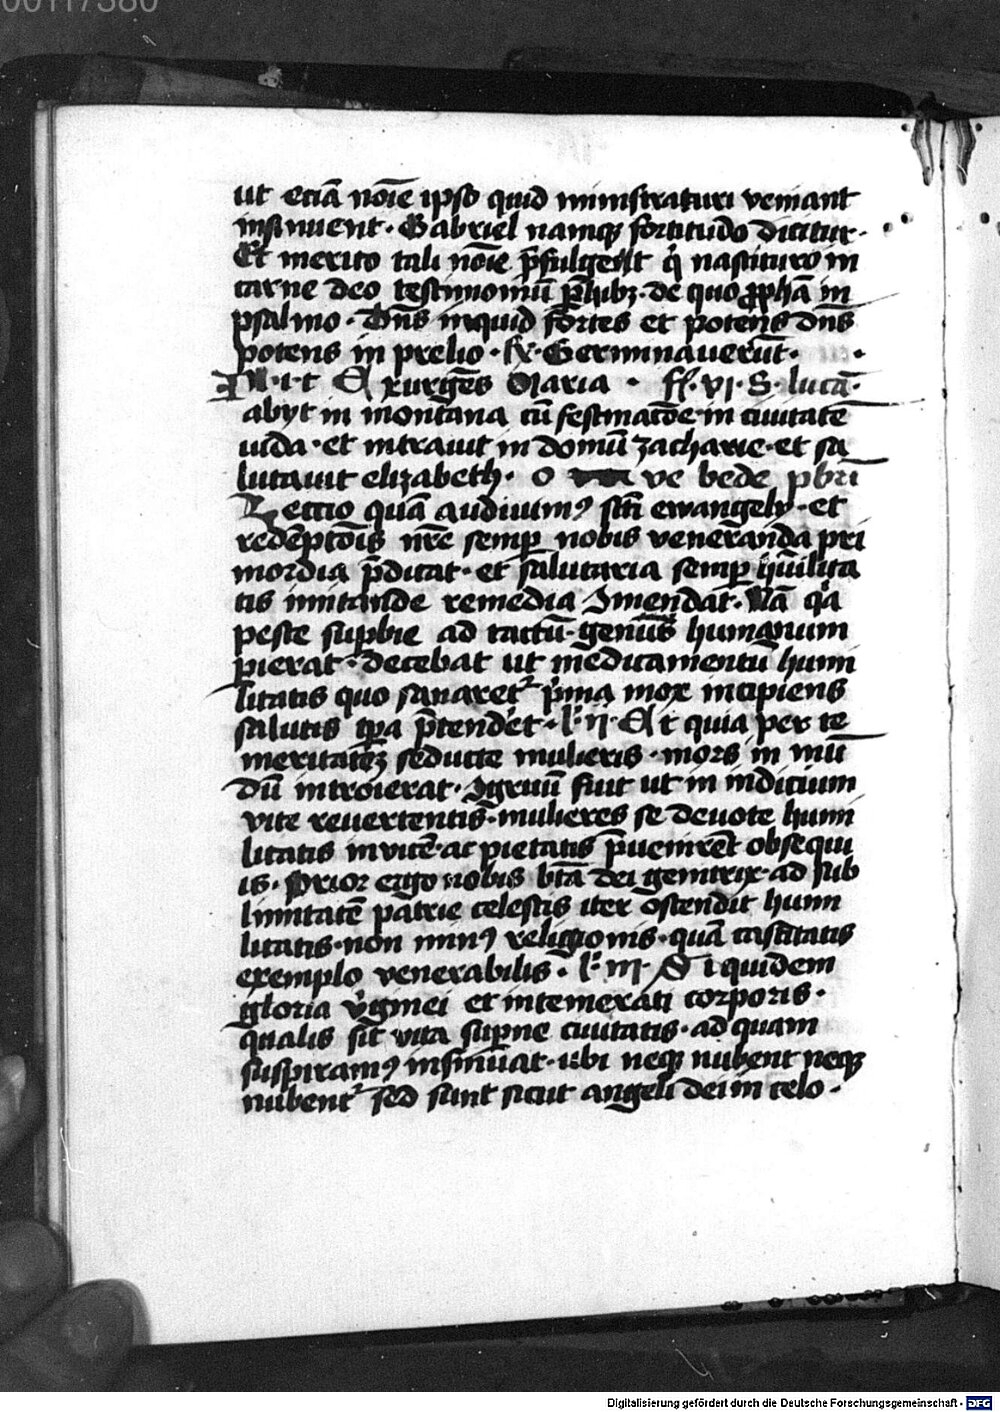 00117380
ut etiā nōıe ipso quid ministraturi veniant
insinuent · Gabriel namqꝫ fortitudo dicitur ·
Et merito tali nōie p̄fulgent q̇ nascituro in
carne deo testimoniū p̄hibꝫ · de quo ꝓphā in
psalmo · Dn̄s inquid fortes et potens dn̄s
potens in prelio · R̷ · Germinauerūt ·
I · i · t Exurgēs Maria · ff · vi · S · lucā ·
abyt in montana cū festinacōe in ciuitatē
iuda · et intrauit in domū zacharie · et sa
lutauit elizabeth · O ve bede pb̄ri
Lectio quā audiuimꝰ sc̄ti ewangely · et
redēptōis nr̄e semꝑ nobis veneranda pri
mordia p̄dicat · et salutaria semꝑ hūilita
tis imitande remedia Imendat · Nā q̇a
peste suꝑbie ad tactū · genus humanum
pierat · decebat ut medicamentū humi
litatis quo sanaretᷣ p̍ma mox incipiens
salutis tꝑa p̄tenderet · lc̄ ij · Et quia per te
meritatēꝫ seducte mulieris · mors in mū
dū introierat · Igruū fuit ut in indicium
vite reuertentis · mulieres se deuote humi
litatis inuicē · ac pietatis p̄uenirēt obsequi
is · Prior ergo nobis btā dei genitrix · ad sub
limitatē patrie celestis iter ostendit humi
litatis · non minꝰ religionis · quā castitatis
exemplo venerabilis · lc̄ iii · Siquidem
gloria v̍ginei et intemerati corporis ·
qualis sit vita suꝑne ciuitatis · ad quam
suspiramꝰ insinuat · ubi neqꝫ nubent neqꝫ
nubentᷣ sed sunt sicut angeli dei in celo ·
Digitalisierung gefördert durch die Deutsche Forschungsgemeinschaft - DFG